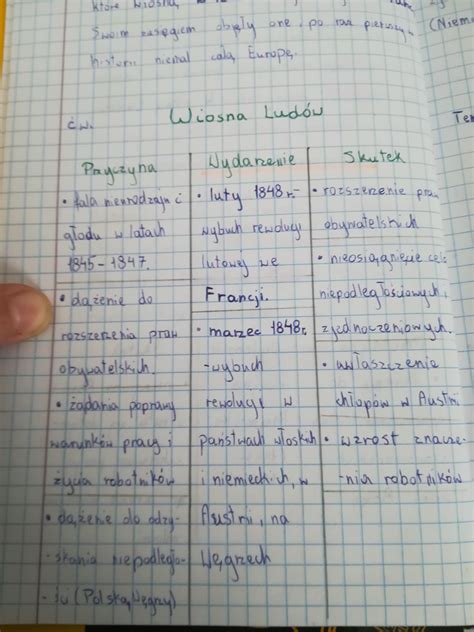 które wiosną
Swoim zasięgiem objęły one, po raz pierwszy
historii niemal całą Europę.
ćw.
Wiosna Ludów
Przyczyna
• fala nieurodzaju i
głodu w latach
1845-1847.
• dążenie do
rozszerzenia praw
obywatelskich.
• żądania poprawy
warunków pracy i
życia robotników
• dążenie do odzy-
-skania niepodległo-
-ści (Polska, Węgry)
Wydarzenie
• luty 1848 r.-
wybuch rewolucji
lutowej we
Francji.
• marzec 1848 r.
-wybuch
rewolucji w
państwach włoskich
i niemieckich, w
Austrii, na
Węgrzech
Skutek
• rozszerzenie praw
obywatelskich
• nieosiągnięcie celi
niepodległościowych i
zjednoczeniowych.
• uwłaszczenie
chłopów w Austrii.
• wzrost znacze-
-nia robotników
(Niem